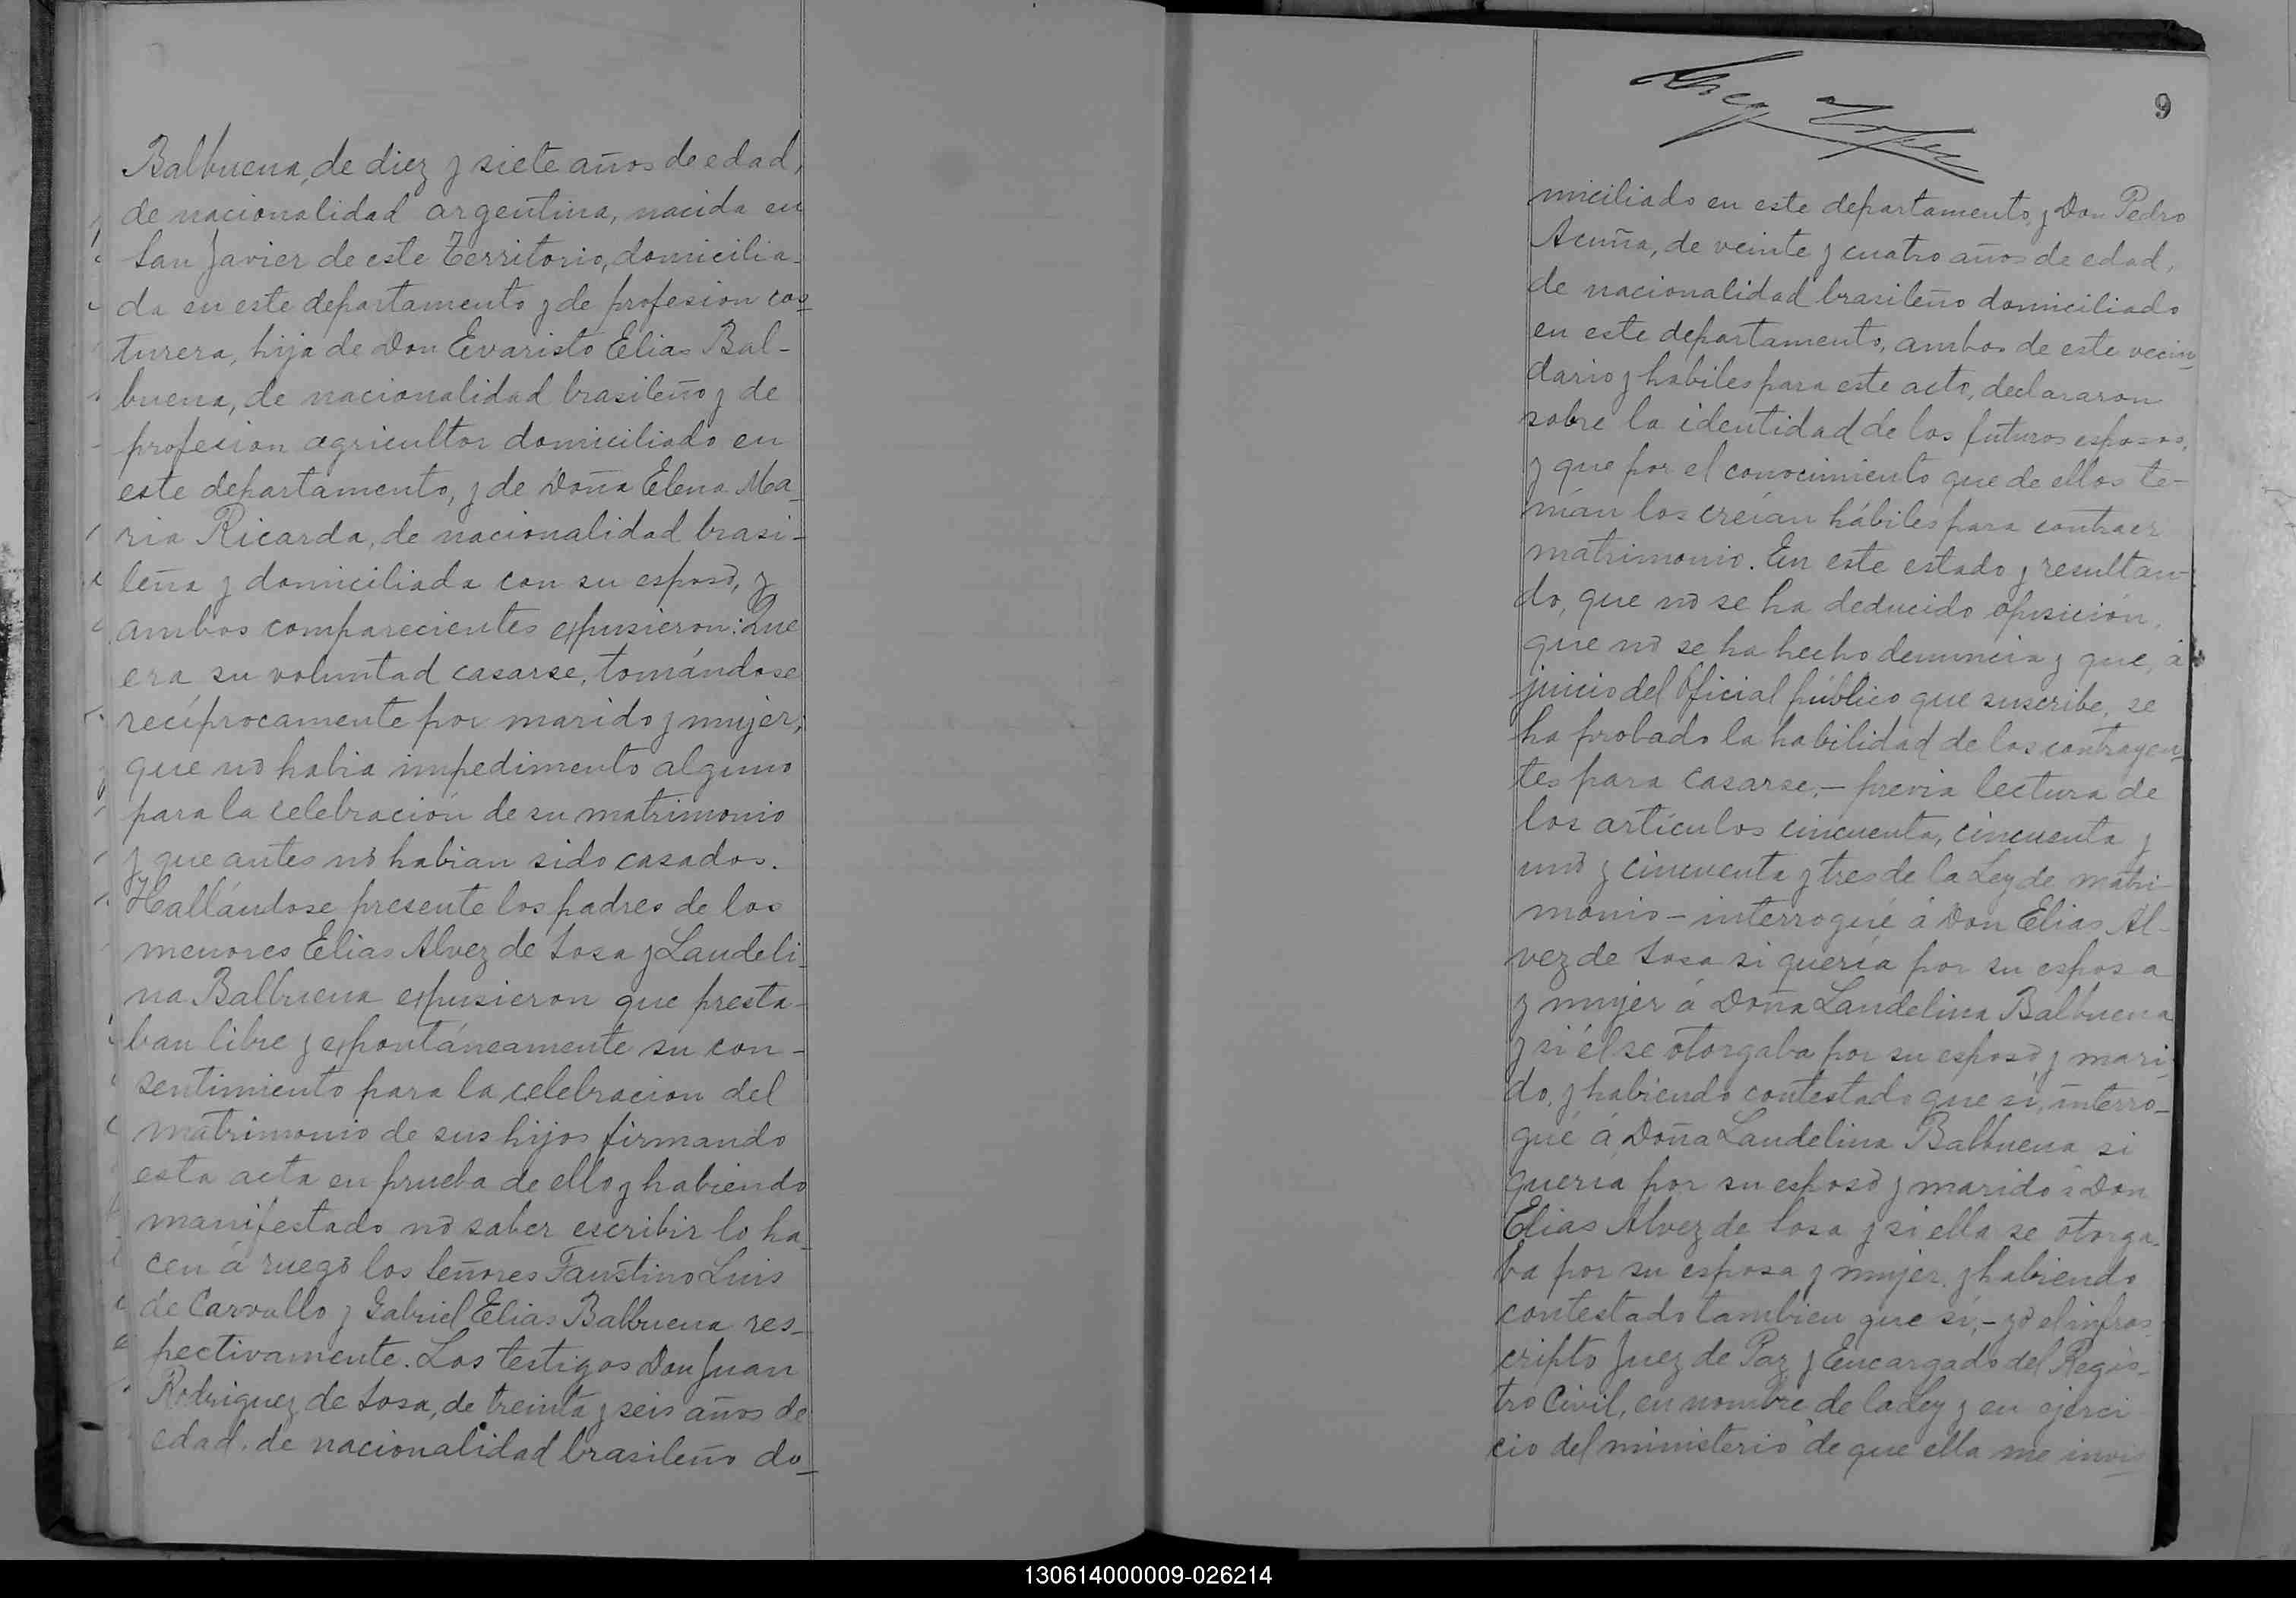 Balbuena, de diez y siete años de edad,
de nacionalidad argentina, nacida en
San Javier de este Territorio, domicilia-
da en este departamento y de profesion cos-
turera, hija de Don Evaristo Elias Bal-
buena, de nacionalidad brasileño y de
profesion agricultor domiciliado en
este departamento, y de Doña Elena Ma-
ria Ricarda, de nacionalidad brasi-
leña y domiciliada con su esposo, y
ambos comparecientes expusieron: Que
era su voluntad casarse, tomándose
recíprocamente por marido y mujer;
que no habia impedimento alguno
para la celebración de su matrimonio
y que antes no habian sido casados.
Hallándose presente los padres de los
menores Elias Alvez de Sosa y Laudeli-
na Balbuena expusieron que presta-
ban libre y expontáneamente su con-
sentimiento para la celebracion del
matrimonio de sus hijos firmando
esta acta en prueba de ello y habiendo
manifestado no saber escribir lo ha-
cen á ruego los Señores Faustino Luis
de Carvallo y Gabriel Elias Balbuena res-
pectivamente. Los testigos Don Juan
Rodriguez de Sosa, de treinta y seis años de
edad, de nacionalidad brasileño do-
9
miciliado en este departamento, y Don Pedro
Acuña, de veinte y cuatro años de edad,
de nacionalidad brasileño domiciliado
en este departamento, ambos de este vecin-
dario y habiles para este acto, declararon
sobre la identidad de los futuros esposos,
y que por el conocimiento que de ellos te-
nían los creían hábiles para contraer
matrimonio. En este estado y resultan-
do, que no se ha deducido oposición,
que no se ha hecho denuncia y que, á
juicio del Oficial público que suscribe, se
ha probado la habilidad de los contrayen-
tes para casarse,- previa lectura de
los artículos cincuenta, cincuenta y
uno y cincuenta y tres de la Ley de matri-
monio - interrogué á Don Elias Al-
vez de Sosa si quería por su esposa
y mujer á Doña Laudelina Balbuena
y si él se otorgaba por su esposo y mari-
do, y habiendo contestado que si, interro-
gué á Doña Laudelina Balbuena si
queria por su esposo y marido á Don
Elias Alvez de Sosa y si ella se otorga-
ba por su esposa y mujer, y habiendo
contestado tambien que si,- yo el infras-
cripto Juez de Paz y Encargado del Regis-
tro Civil, en nombre de la Ley y en ejerci-
cio del ministerio de que ella me invis-
130614000009-026214